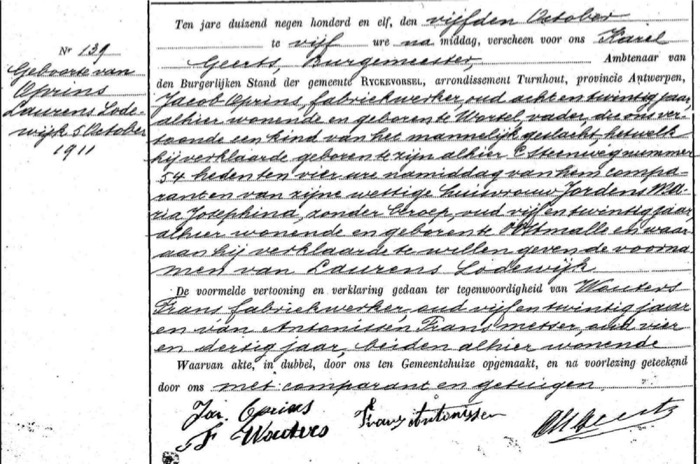 Nr 139
Geboorte van
Oprins
Laurens Lode-
wijk 5 October
1911
Ten jare duizend negen honderd en elf, den vijfden October
te vijf ure na middag, verscheen voor ons Karel
Geerts, Burgemeester, Ambtenaar van
den Burgerlijken Stand der gemeente RYCKEVORSEL, arrondissement Turnhout, provincie Antwerpen,
Jacob Oprins, fabriekwerker, oud acht en twintig jaar,
alhier wonende en geboren te Wortel, vader, die ons ver-
toonde een kind van het mannelijk geslacht, hetwelk
hij verklaarde geboren te zijn alhier Steenweg nummer
54 heden ten vier ure namiddag van hem compa-
rant en van zijne wettige huisvrouw Jordens Ma-
ria Josephina, zonder beroep, oud vijf en twintig jaar
alhier wonende en geboren te Westmalle en waar-
aan hij verklaarde te willen geven de voorna-
men van Laurens Lodewijk
De voormelde vertooning en verklaring gedaan ter tegenwoordigheid van Wouters
Frans fabriekwerker, oud vijf en twintig jaar
en van Antonissen Frans metser, oud vier
en dertig jaar, beiden alhier wonende
Waarvan akte, in dubbel, door ons ten Gemeentehuize opgemaakt, en na voorlezing geteekend
door ons met comparant en getuigen.
Jac. Oprins Frans Antonissen Geerts
F Wouters